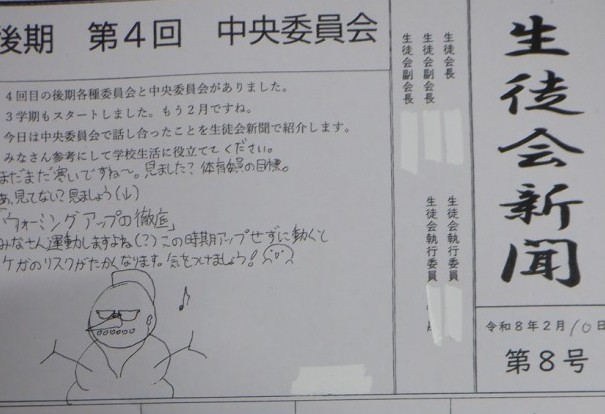 生徒会新聞
令和8年2月10日
第8号
生徒会長
生徒会副会長
生徒会副会長
生徒会執行委員
生徒会執行委員
後期 第4回 中央委員会
4回目の後期各種委員会と中央委員会がありました。
3学期もスタートしました。もう2月ですね。
今日は中央委員会で話し合ったことを生徒会新聞で紹介します。
みなさん参考にして学校生活に役立ててください。
まだまだ寒いですね〜。見ました?体育委員の目標。
あ、見てない?見ましょう(山)
「ウォーミングアップの徹底」
みなさん運動しますよね(?)この時期アップせずに動くと
ケガのリスクがたかくなります。気をつけましょう!